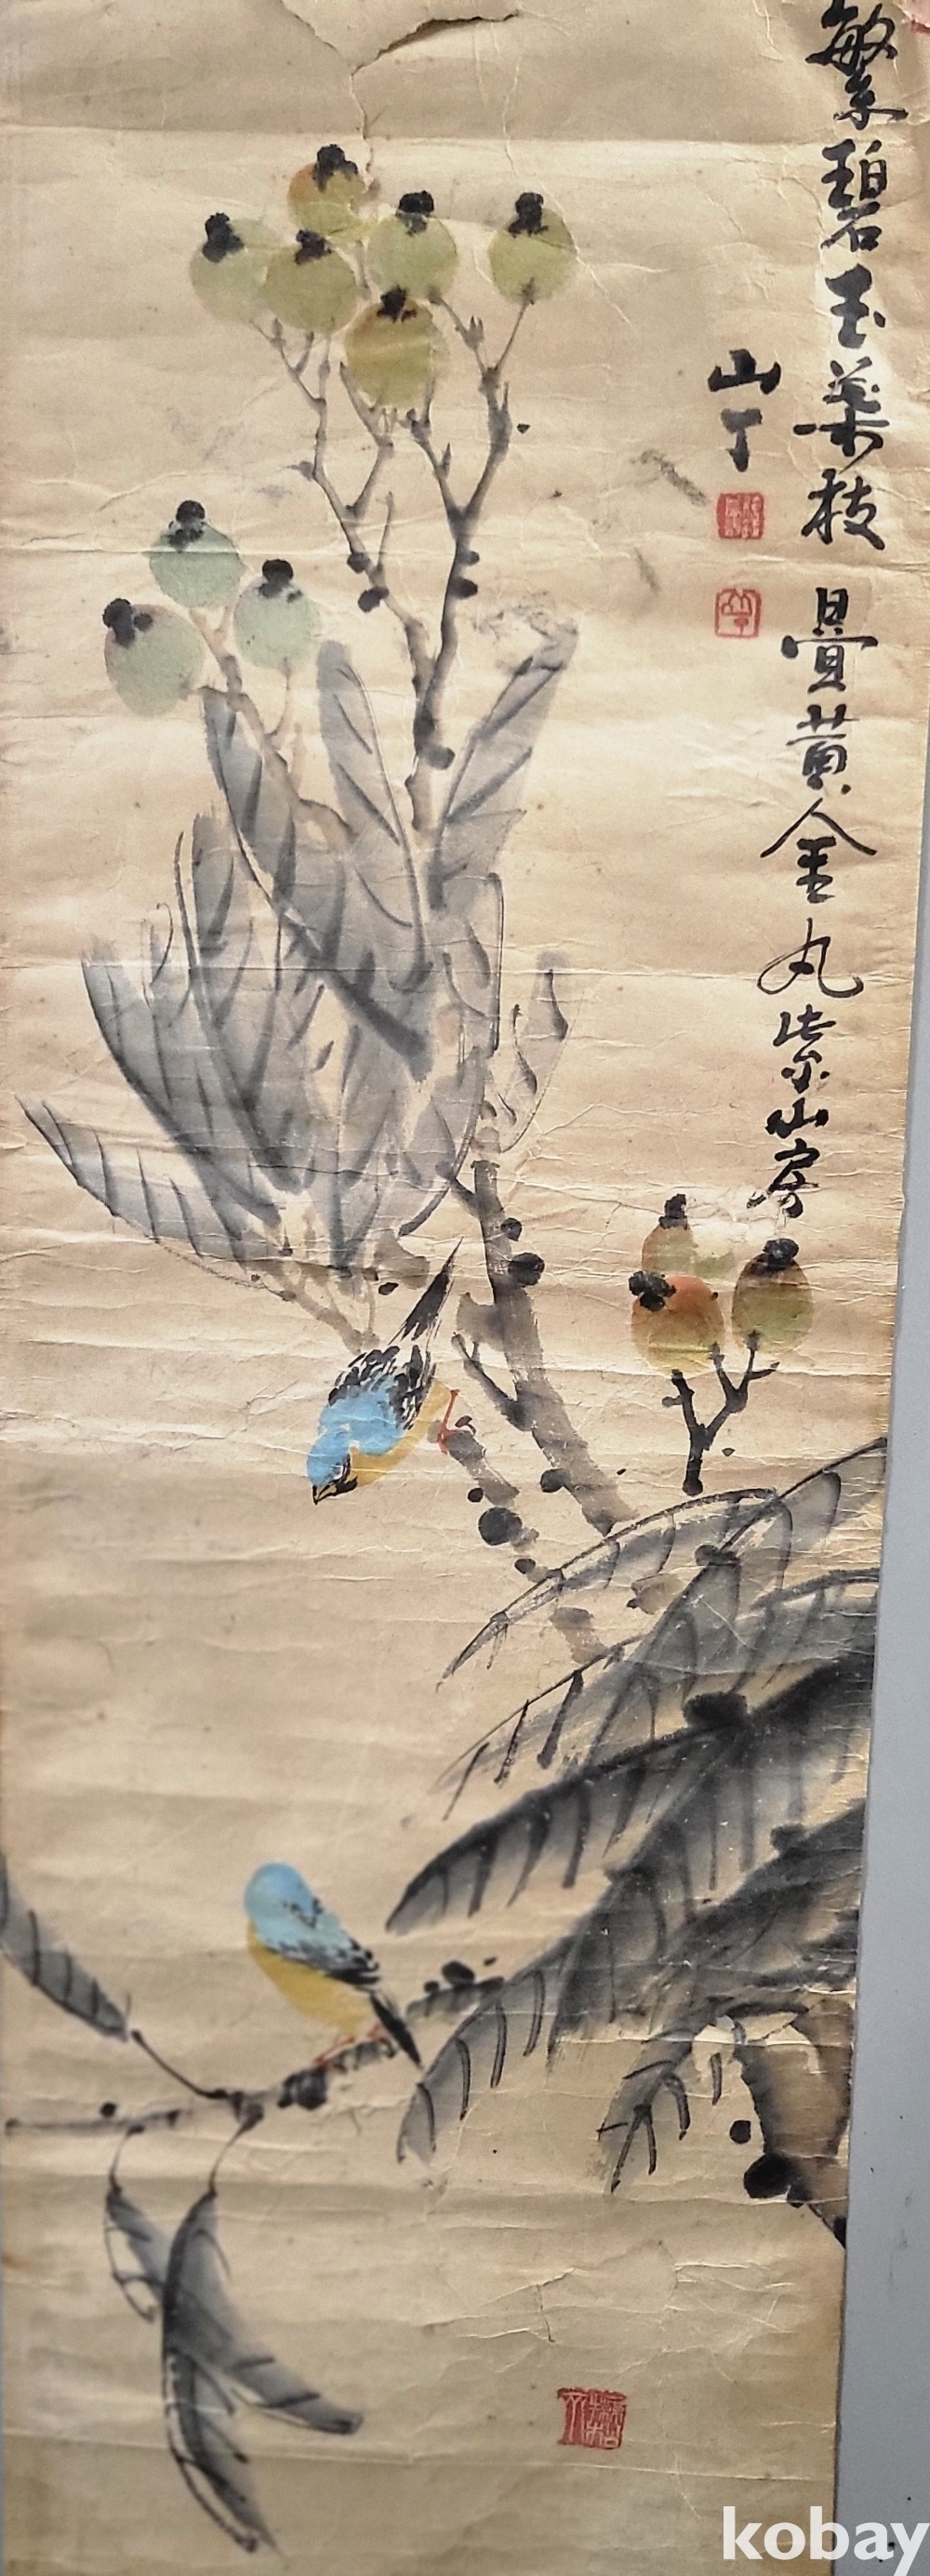 繁碧玉葉枝 疊黃金丸 紫山房
山丁
kobay